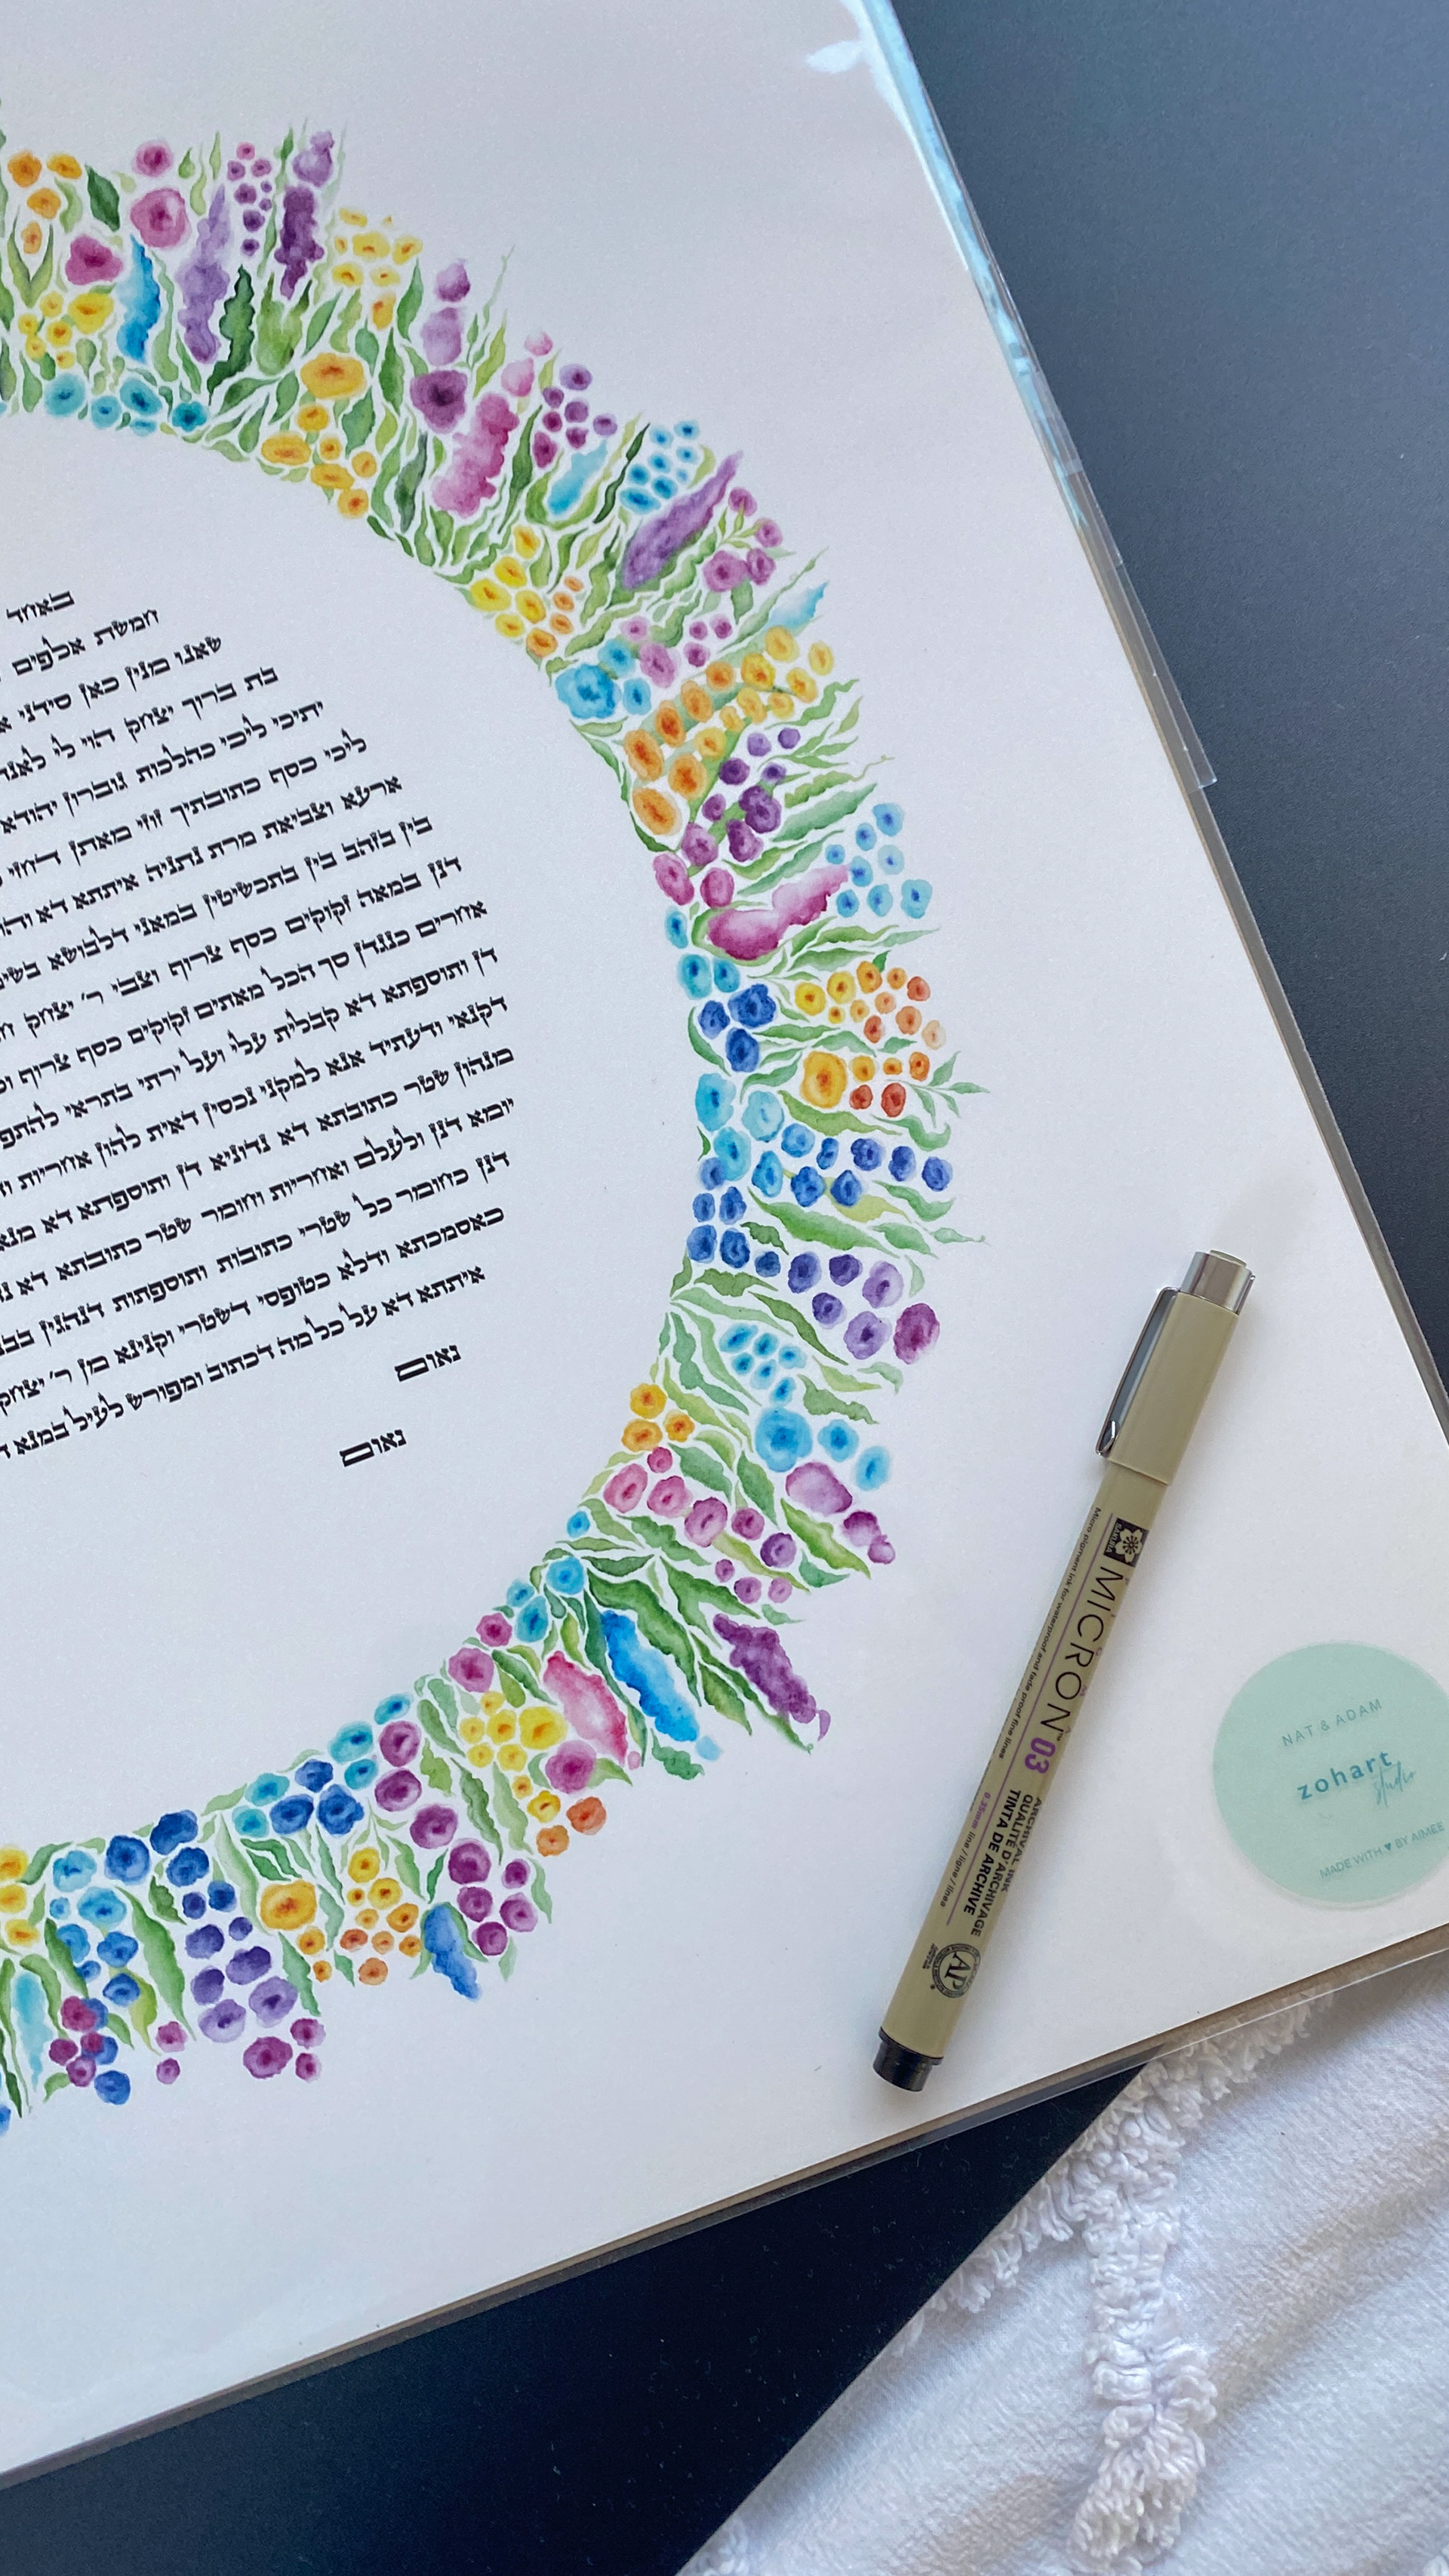 באחד
חמשת אלפים
שאנו מנין כאן סידני
בת ברוך יצחק הוי לי
יתיכי ליכי כהלכות גוברין
ליכי כסף כתובתיך זוזי מאתן דחזי
ארעא וצביאת מרת נתניה איתתא דא
בין בזהב בין בתכשיטין במאני דלבושא
דנן במאה זקוקים כסף צרוף וצבי ר׳ יצחק
אחרים כנגדן סך הכל מאתים זקוקים כסף צרוף
דן ותוספתא דא קבלית עלי ועל ירתי בתראי
דקנאי ודעתיד אנא למקני נכסין דאית להון אחריות
מנהון שטר כתובתא דא נדוניא דן ותוספתא דא
יומא דנן ולעלם ואחריות וחומר שטר כתובתא דא
דנן כחומר כל שטרי כתובות ותוספתות דנהגין
כאסמכתא ודלא כטופסי דשטרי וקנינא מן ר׳ יצחק
איתתא דא על כל מה דכתוב ומפורש לעיל במנא
נאום
נאום
MICRON™ 03
Micro pigment ink for waterproof and fade proof fine lines
0.35mm line / ligne / línea
ARCHIVAL INK
QUALITÉ D'ARCHIVAGE
TINTA DE ARCHIVE
AP
NAT & ADAM
zohart
studio
MADE WITH ♥ BY AIMEE